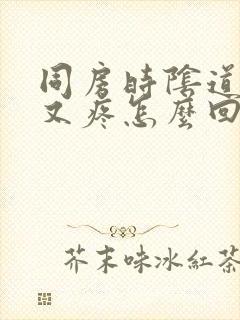 同房時陰道
又疼怎麼回
芥末味冰紅茶